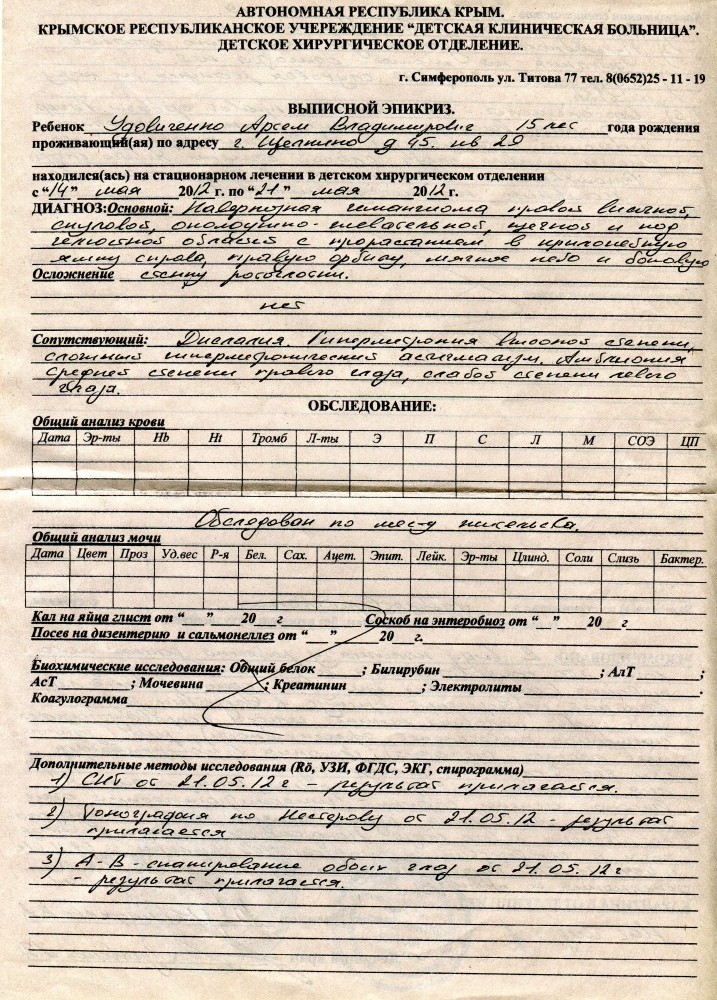 АВТОНОМНАЯ РЕСПУБЛИКА КРЫМ.
КРЫМСКОЕ РЕСПУБЛИКАНСКОЕ УЧЕРЕЖДЕНИЕ "ДЕТСКАЯ КЛИНИЧЕСКАЯ БОЛЬНИЦА".
ДЕТСКОЕ ХИРУРГИЧЕСКОЕ ОТДЕЛЕНИЕ.
г. Симферополь ул. Титова 77 тел. 8(0652)25 - 11 - 19
ВЫПИСНОЙ ЭПИКРИЗ.
Ребенок Удовиченко Арсен Владимирович 15 лет года рождения
проживающий(ая) по адресу г. Щелкино д 45. кв 29
находился(ась) на стационарном лечении в детском хирургическом отделении
с "14" мая 2012 г. по "21" мая 2012 г.
ДИАГНОЗ: Основной: Кавернозная гемангиома правой височной,
скуловой, околоушно-жевательной, щечной и под
челюстной областей с прорастанием в крылонебную
ямку справа, правую орбиту, мягкое небо и боковую
Осложнение стенку ротоглотки.
нет
Сопутствующий: Дислалия. Гиперметропия высокой степени,
сложный гиперметропический астигматизм, Амблиопия
средней степени правого глаза, слабой степени левого
глаза.
ОБСЛЕДОВАНИЕ:
Общий анализ крови
Дата Эр-ты Hb Ht Тромб Л-ты Э П С Л М СОЭ ЦП
Обследован по месту жительства.
Общий анализ мочи
Дата Цвет Проз Уд.вес Р-я Бел. Сах. Ацет. Эпит. Лейк. Эр-ты Цлинд. Соли Слизь Бактер.
Кал на яйца глист от "__" ____ 20__г Соскоб на энтеробиоз от "__" ___ 20__г
Посев на дизентерию и сальмонеллез от "___" ____ 20__ г.
Биохимические исследования: Общий белок ______; Билирубин ______; АлТ ______;
АсТ ______; Мочевина ______; Креатинин ______; Электролиты ______.
Коагулограмма
Дополнительные методы исследования (Rö, УЗИ, ФГДС, ЭКГ, спирограмма)
1) от 21.05.12 г - результат прилагается.
2) Тонография по Нестерову от 21.05.12 - результат
прилагается
3) А-В-сканирование обоих глаз от 21.05.12 г
- результат прилагается.